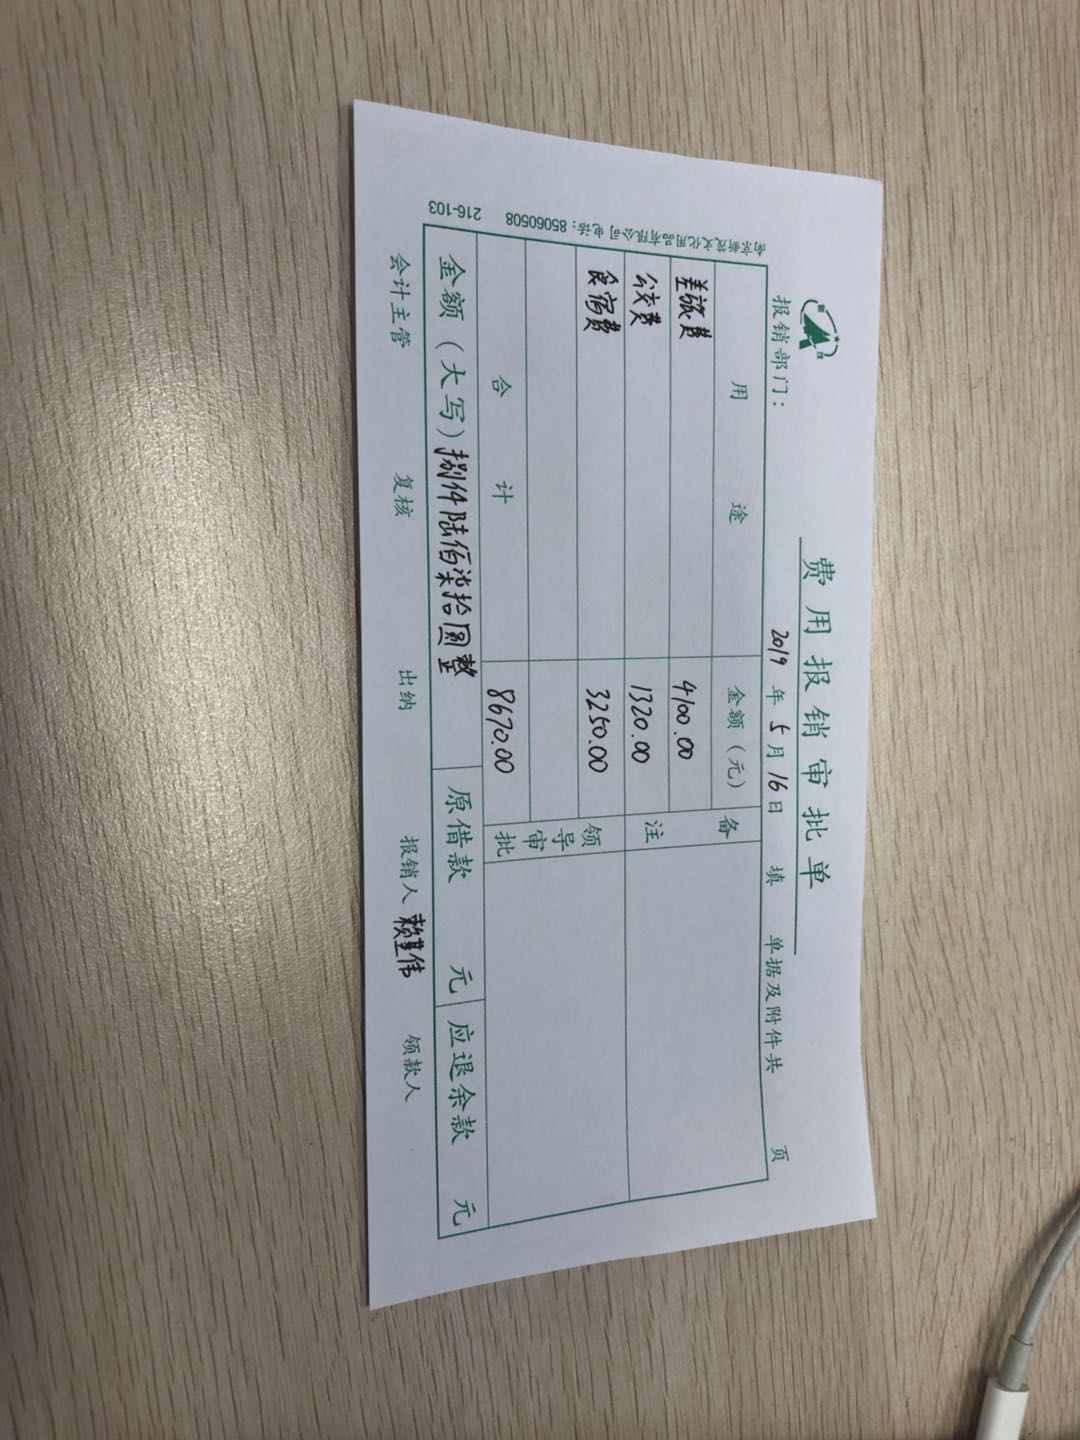 费用报销审批单
报销部门： 2019年5月16日填 单据及附件共 页
用途 金额（元） 备注
差旅费 4100.00
公交费 1320.00
食宿费 3250.00 领导审批
合计 8670.00
金额（大写）捌仟陆佰柒拾圆整 原借款 元 应退余款 元
会计主管 复核 出纳 报销人 赖基伟 领款人
216-103 文化用品有限公司 电话：85060508